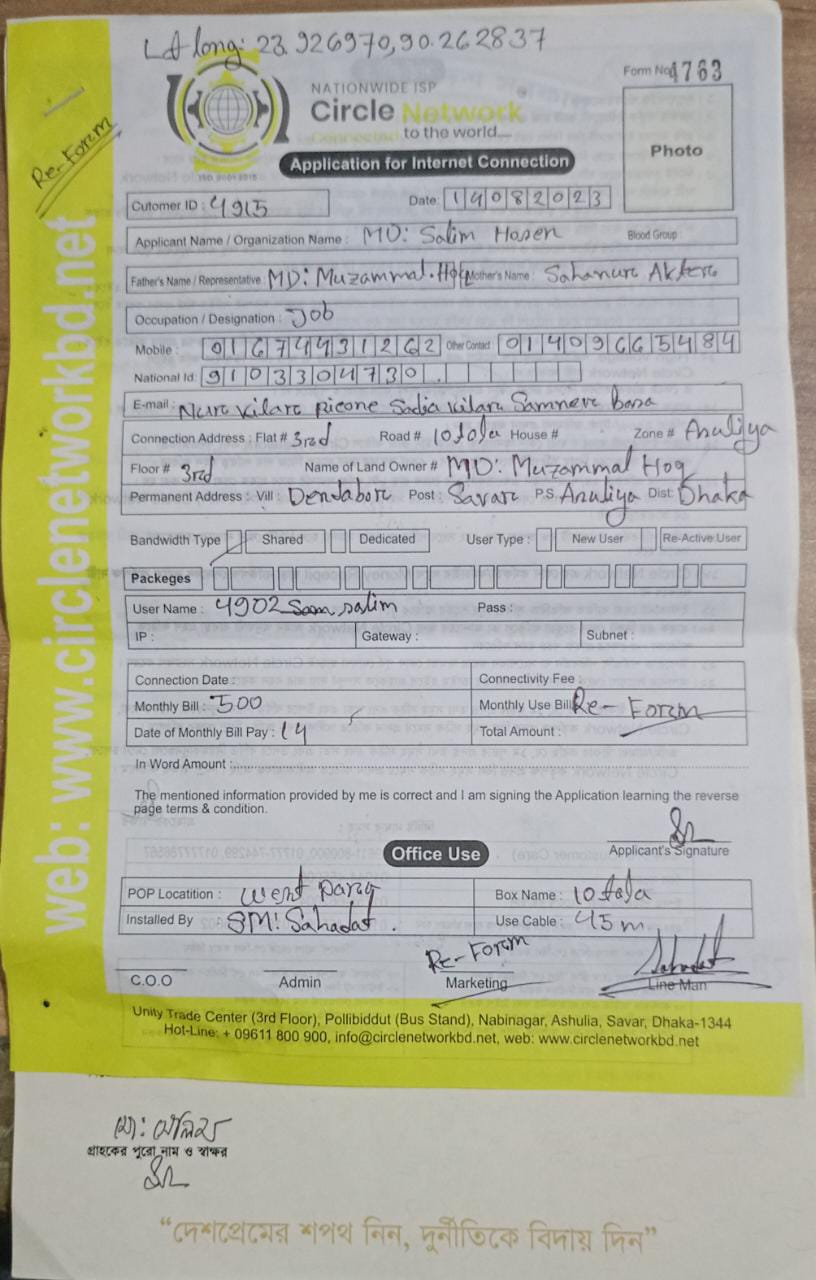 Lat long: 23.926970,90.262837
Form No 4763
NATIONWIDE ISP
Circle Network
Connected to the world....
Photo
Re-Form
ISO 9001:2015
Application for Internet Connection
Cutomer ID : 4915 Date: 14082023
Applicant Name / Organization Name : MD: Salim Hosen Blood Group :
Father's Name / Representative : MD: Muzammal. Hoq Mother's Name : Sahanur Akter
Occupation / Designation : Job
Mobile : 01674431262 Other Contact 01409665484
National Id: 9103304730
E-mail : Sadia Samner Basa
Connection Address : Flat # 3rd Road # 10 tala House # Zone # Asuliya
Floor # 3rd Name of Land Owner # MD: Muzammal Hoq
Permanent Address : Vill : Dendabor Post : Savar P.S. Asuliya Dist: Dhaka
Bandwidth Type Shared Dedicated User Type : New User Re-Active User
Packeges
User Name : 4902 salim Pass :
IP : Gateway : Subnet :
Connection Date : Connectivity Fee :
Monthly Bill : 500 Monthly Use Bill Re- Form
Date of Monthly Bill Pay : 14 Total Amount :
In Word Amount :
The mentioned information provided by me is correct and I am signing the Application learning the reverse
page terms & condition.
Applicant's Signature
Office Use
POP Locatition : West para Box Name : 10 tala
Installed By SM: Sahadat. Use Cable : 45m
Re-Form Sahadat
C.O.O Admin Marketing Line Man
Unity Trade Center (3rd Floor), Pollibiddut (Bus Stand), Nabinagar, Ashulia, Savar, Dhaka-1344
Hot-Line: + 09611 800 900, info@circlenetworkbd.net, web: www.circlenetworkbd.net
web: www.circlenetworkbd.net
মো: সেলিম
গ্রাহকের পুরো নাম ও স্বাক্ষর
“দেশপ্রেমের শপথ নিন, দুর্নীতিকে বিদায় দিন”